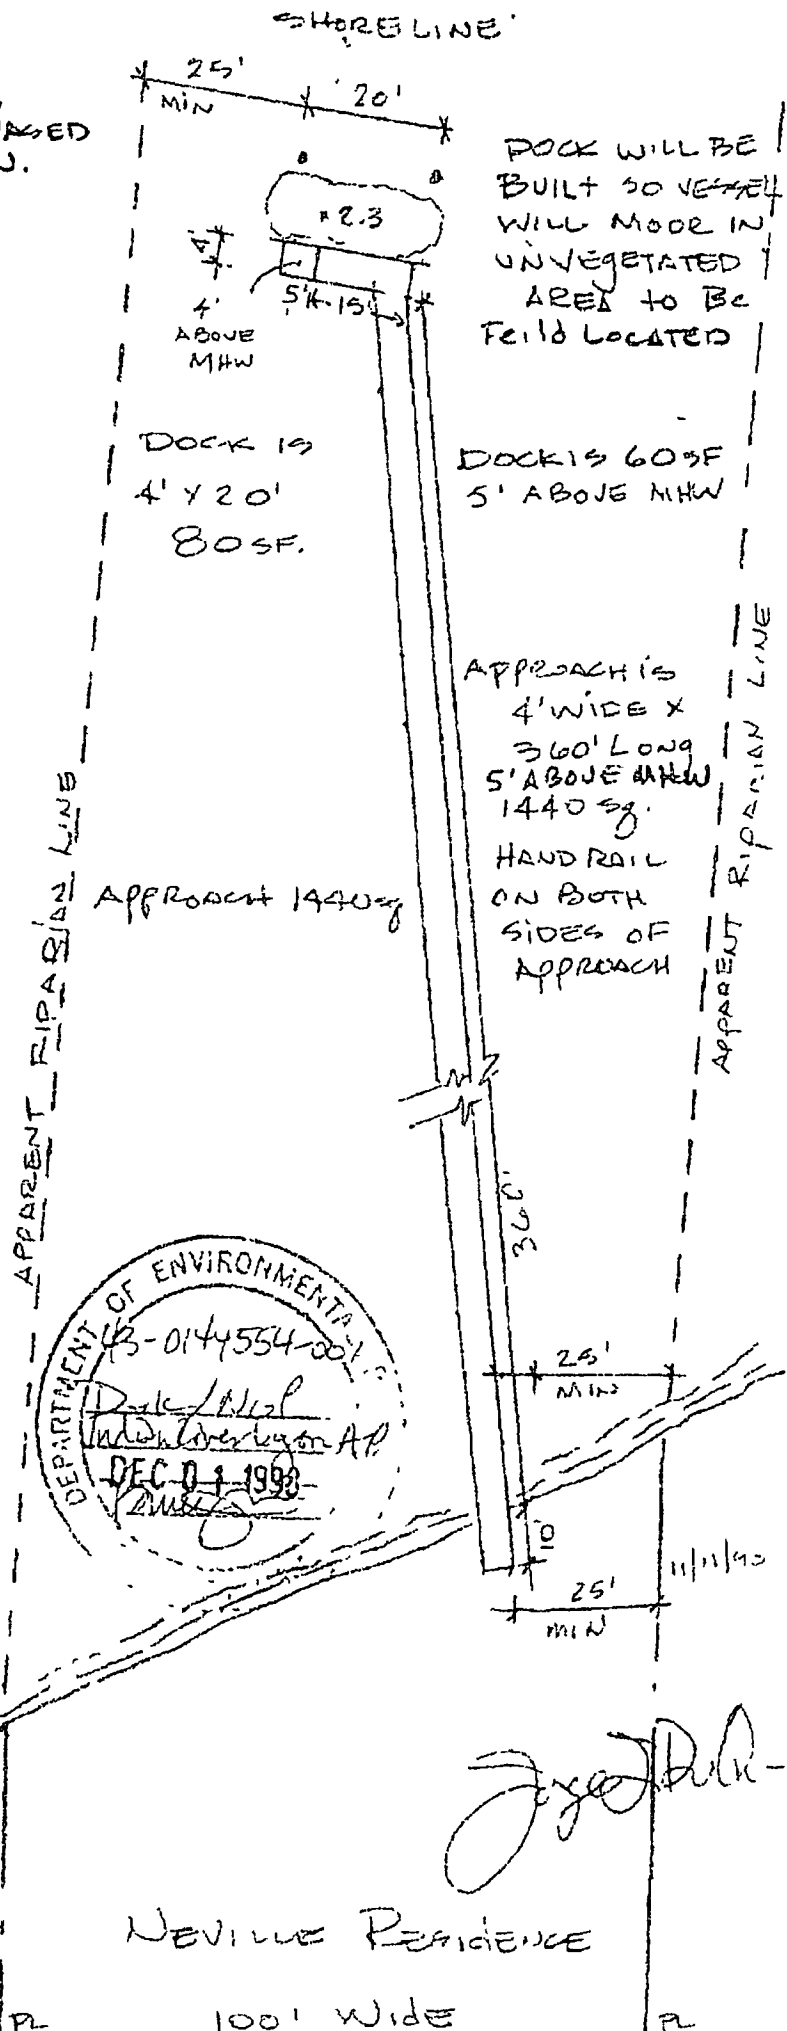 SHORELINE
25'
MIN
20'
N.
DOCK WILL BE
BUILT SO VESSEL
WILL MOOR IN
UNVEGETATED
AREA to BE
FEild LOCATED
2.3
4
4'
ABOVE
MHW
5'
15
DOCK IS
4' X 20'
80 SF.
DOCK IS 60 SF
5' ABOVE MHW
APPROACH IS
4' WIDE X
360' LONG
5' ABOVE MHW
1440 sq.
HANDRAIL
ON BOTH
SIDES OF
APPROACH
APPROACH 1440 sq
APPARENT RIPARIAN LINE
APPARENT RIPARIAN LINE
360'
DEPARTMENT OF ENVIRONMENTAL
43-0144554-001
Dock/
Indian River Lagoon A.P.
DEC 01
25'
MIN
10'
25'
MIN
NEVILLE RESIDENCE
PL
100' WIDE
PL